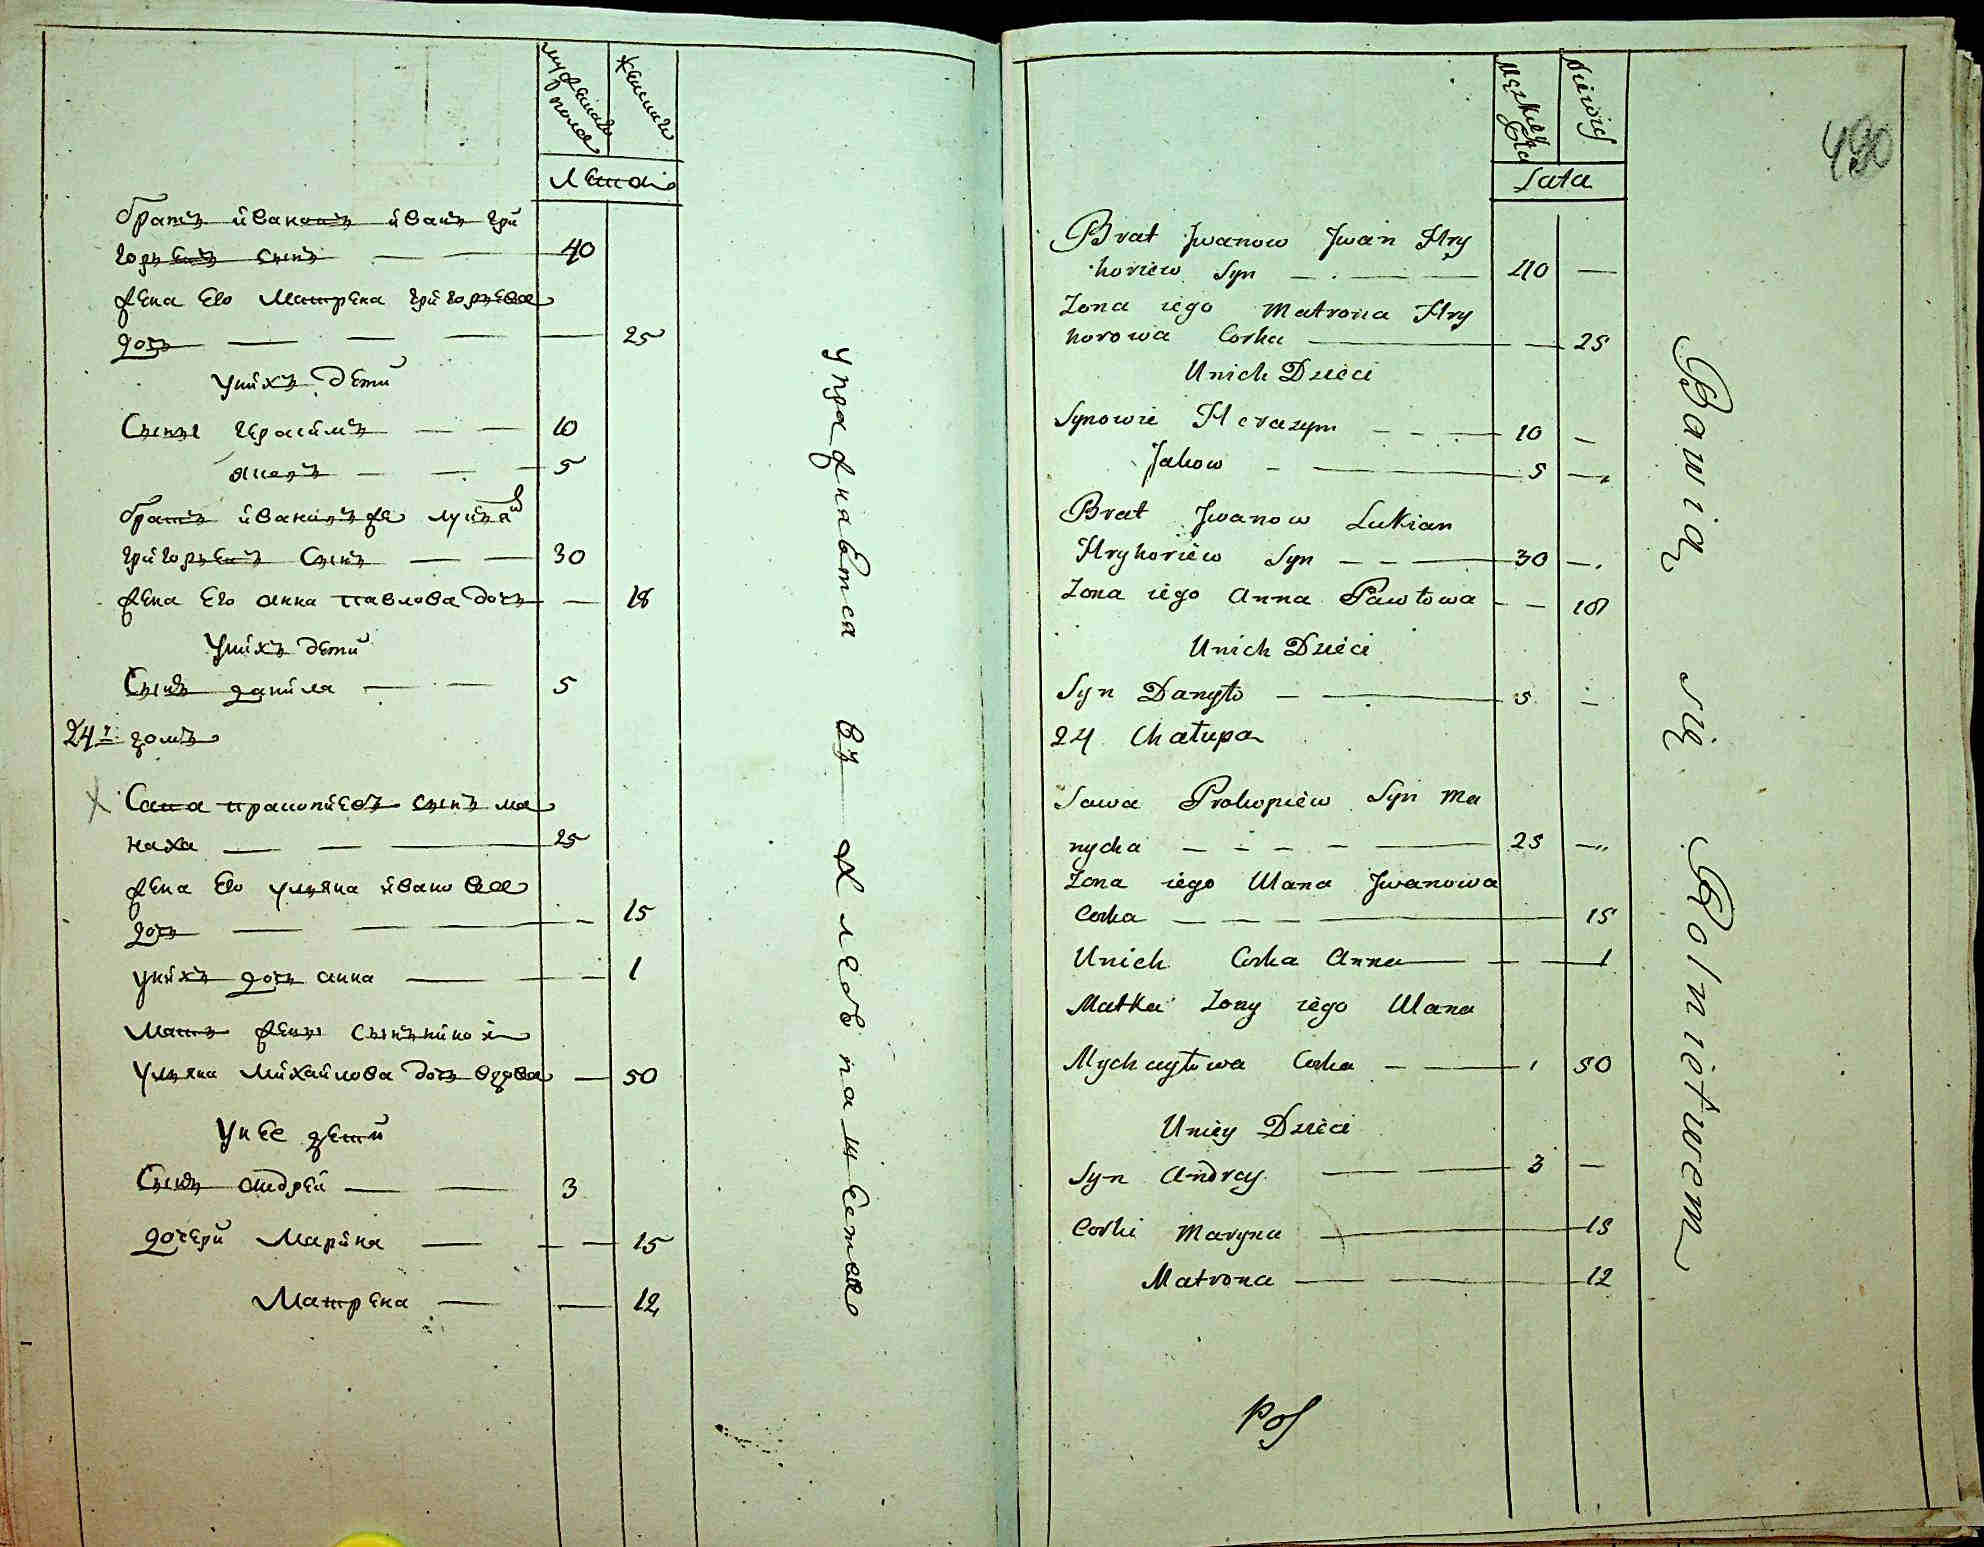 мужеска пола
женска
Лета
братъ ивановъ иванъ гри
горьевъ сынъ — — 40
жена его матрена григорьева
дочь — — — — 25
у нихъ дети
Сыны герасимъ — — 10
яковъ — — 5
братъ ивановъ же лукьян
григорьевъ Сынъ — — 30
жена его анна павлова дочь — 18
у нихъ дети
Сынъ данила — — 5
24й домъ
Сава пракопиевъ сынъ ма
наха — — 25
жена его ульяна иванова
дочь — — — 15
у нихъ дочь анна — — 1
мать жены
ульяна михайлова дочь вдова — 50
у нее дети
Сынъ андрей — — 3
дочери марина — — — 15
Матрена — — 12
упражняется въ хлебопашестве
430
Męzkiey Płci
Niewies
Lata
Brat Jwanow Jwan Hry
horiew Syn — . — 40 —
Zona iego Matrona Hry
horowa Corka — — 25
Unich Dzieci
Synowie Herazym - - — 10 —
Jakow - — 5 —
Brat Jwanow Lukian
Hryhoriew Syn - - — 30 —
Zona iego Anna Pawłowa - — 18
Unich Dzieci
Syn Danyło - — 5 —
24 Chałupa
Sawa Prokopiew Syn Ma
nycha - - - - — 25 —
Zona iego Ulana Jwanowa
Corka - - - — 15
Unich Corka Anna — — — 1
Matka Zony iego Ulana
Mychayłowa Corka - - — 1 50
Uniey Dzieci
Syn Andrey — — 3 —
Corki Maryna — 15
Matrona — — 12
Bawią się Rolnictwem